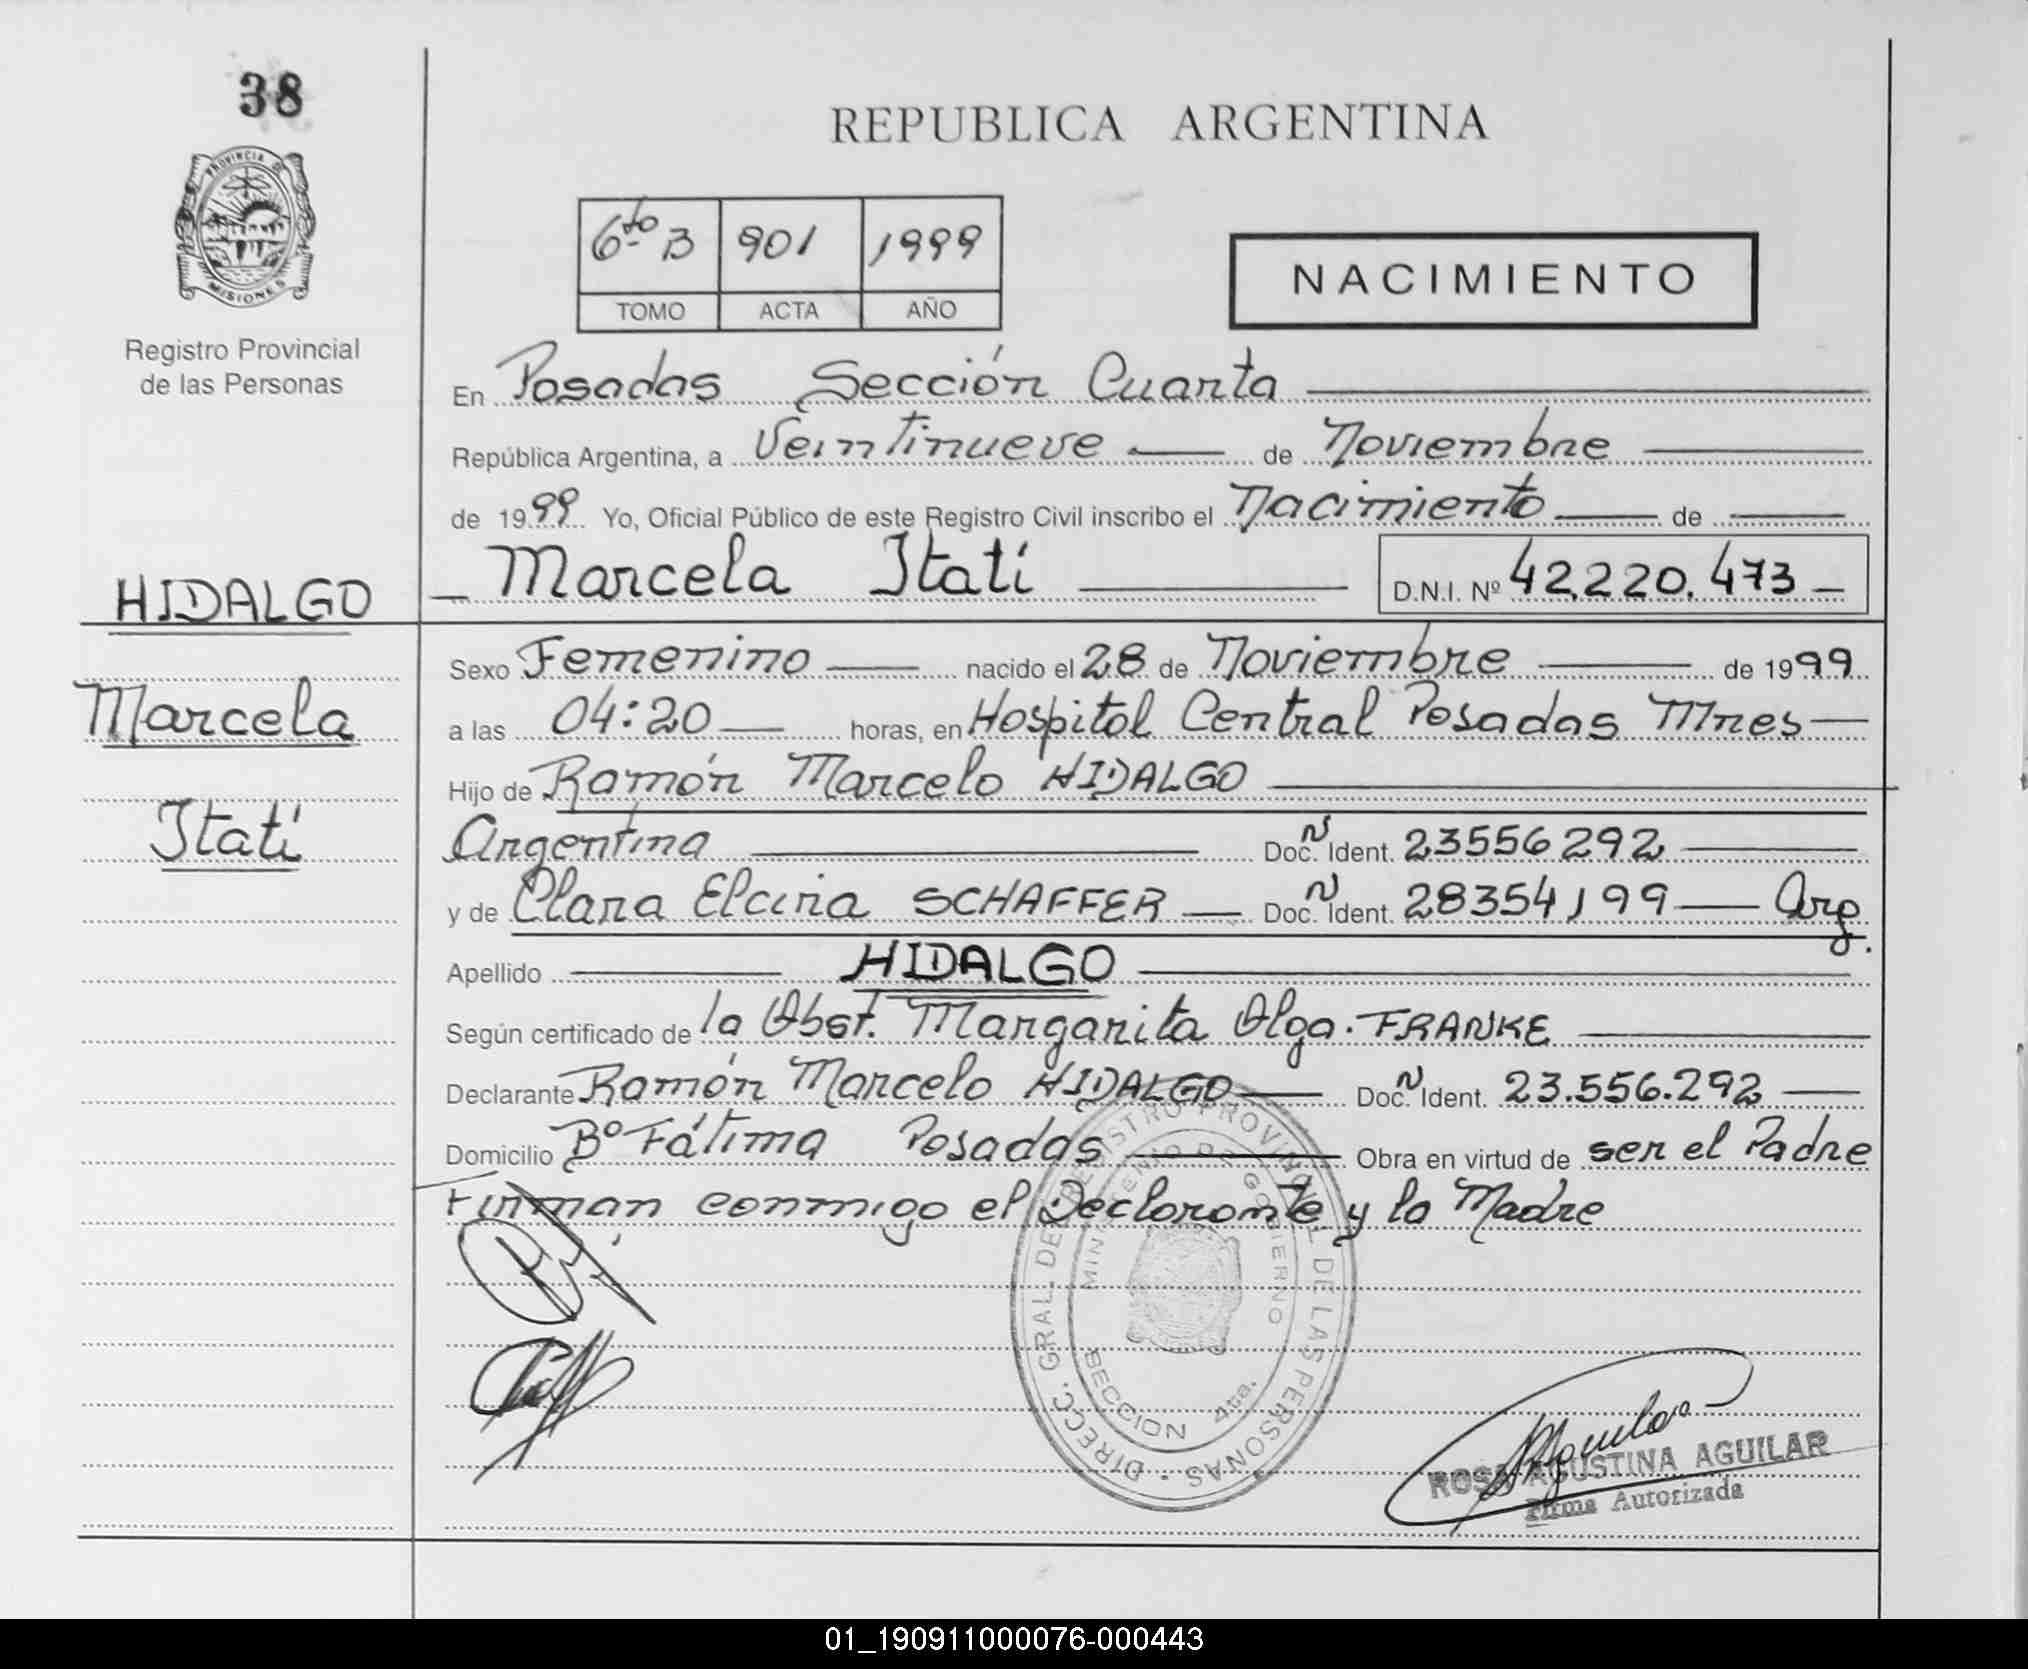 38
PROVINCIA DE
MISIONES
Registro Provincial
de las Personas
HIDALGO
Marcela
Itatí
REPUBLICA ARGENTINA
6to B 901 1999
TOMO ACTA AÑO
NACIMIENTO
En Posadas Sección Cuarta
República Argentina, a Veintinueve de Noviembre
de 1999 Yo, Oficial Público de este Registro Civil inscribo el Nacimiento de
Marcela Itatí D.N.I. Nº 42.220.473
Sexo Femenino nacido el 28 de Noviembre de 1999
a las 04:20 horas, en Hospital Central Posadas Mnes
Hijo de Ramón Marcelo HIDALGO
Argentina Doc. Nº Ident. 23556292
y de Clara Elcira SCHAFFER Doc. Nº Ident. 28354199 Arg.
Apellido HIDALGO
Según certificado de la Obst. Margarita Olga. FRANKE
Declarante Ramón Marcelo HIDALGO Doc. Nº Ident. 23.556.292
Domicilio Bº Fátima Posadas Obra en virtud de ser el Padre
Firman conmigo el Declarante y la Madre
DIRECC. GRAL. DEL REGISTRO PROVINCIAL DE LAS PERSONAS
MINISTERIO DE GOBIERNO
SECCION 4ta.
ROSA AGUSTINA AGUILAR
Firma Autorizada
01_190911000076-000443